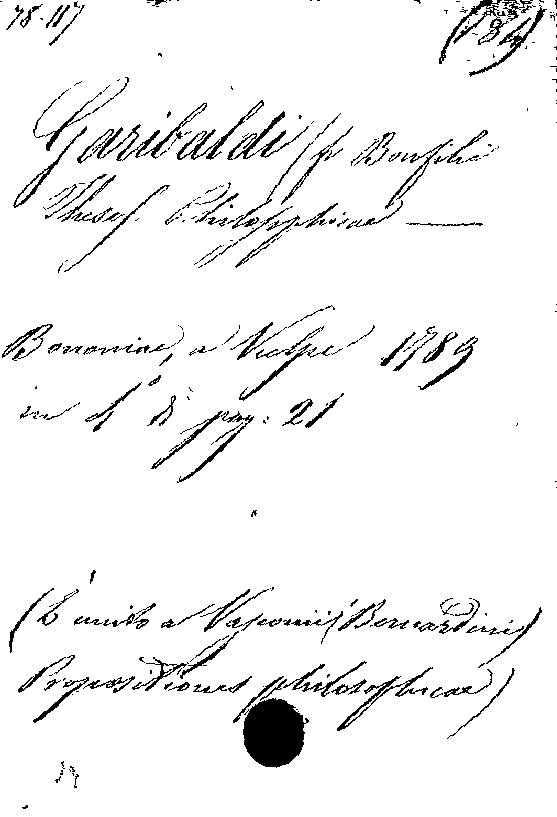 78-117
Garibaldi (fr Bonfilio
Theses Philosophicae —
Bononiae, a Vulpe 1789
in 4° di pag: 21
(È unito a (Bernardini)
Propositiones philosophicae)